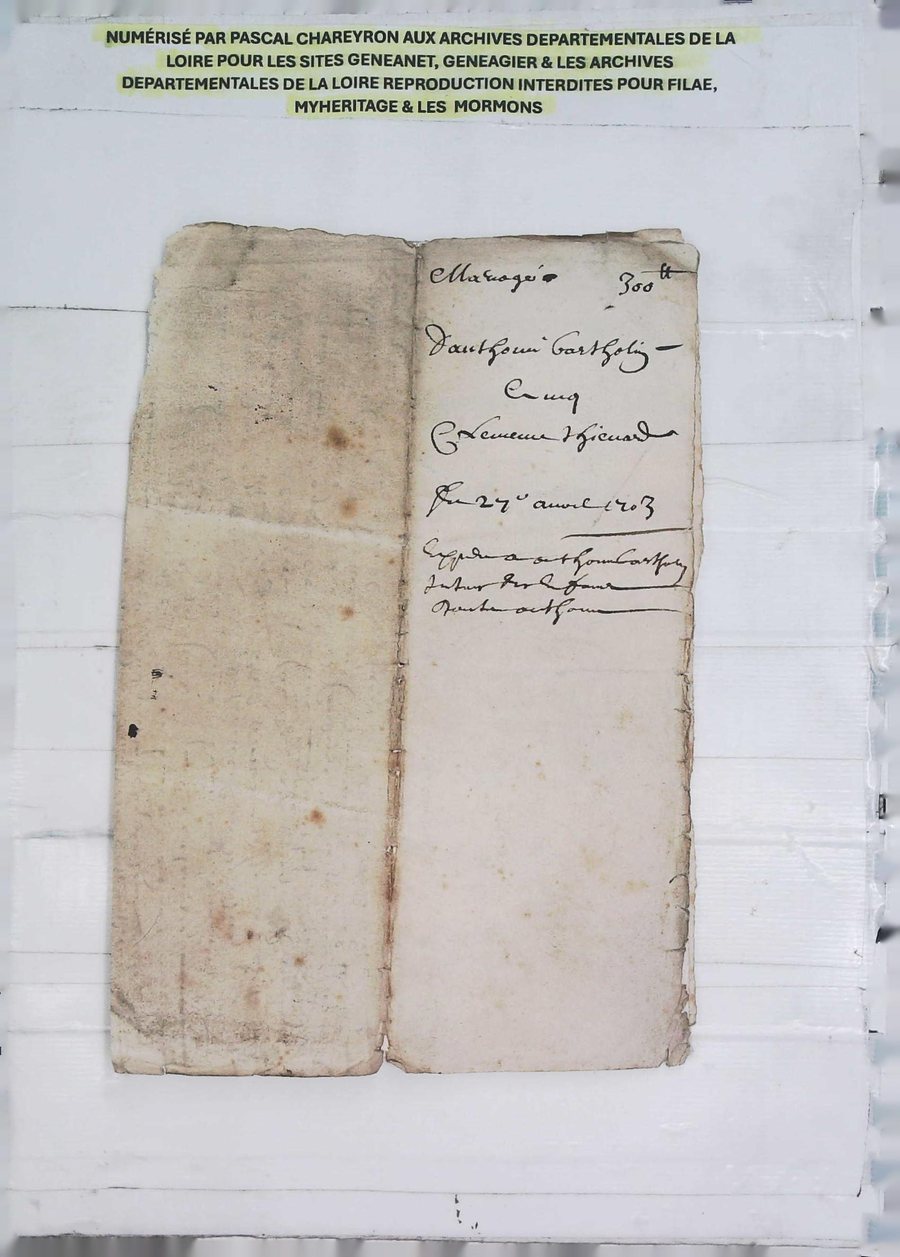 NUMÉRISÉ PAR PASCAL CHAREYRON AUX ARCHIVES DEPARTEMENTALES DE LA
LOIRE POUR LES SITES GENEANET, GENEAGIER & LES ARCHIVES
DEPARTEMENTALES DE LA LOIRE REPRODUCTION INTERDITES POUR FILAE,
MYHERITAGE & LES MORMONS
Mariage 300 ₶
D'anthoine Bartholin
Clemence Thienard
Du 27e avril 1703